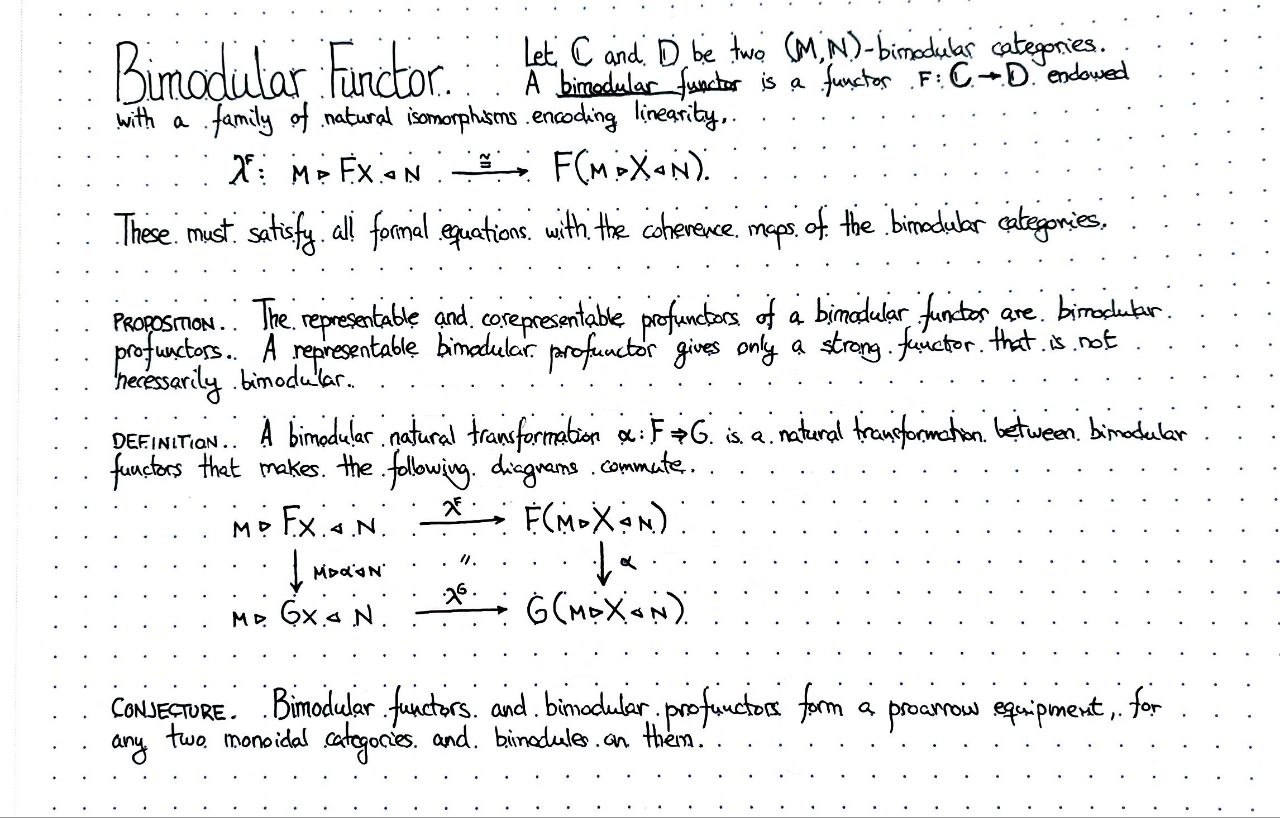 Bimodular Functor. Let ℂ and 𝔻 be two (M,N)-bimodular categories.
A bimodular functor is a functor F: ℂ → 𝔻 endowed
with a family of natural isomorphisms encoding linearity,
λᶠ: M ▹ FX ◃ N ≅⟶ F(M ▹ X ◃ N).
These must satisfy all formal equations with the coherence maps of the bimodular categories.
PROPOSITION. The representable and corepresentable profunctors of a bimodular functor are bimodular
profunctors. A representable bimodular profunctor gives only a strong functor that is not
necessarily bimodular.
DEFINITION. A bimodular natural transformation α: F ⇒ G is a natural transformation between bimodular
functors that makes the following diagrams commute.
M ▹ FX ◃ N λᶠ⟶ F(M ▹ X ◃ N)
↓ M▹α◃N " ↓ α
M ▹ GX ◃ N λᴳ⟶ G(M ▹ X ◃ N)
CONJECTURE. Bimodular functors and bimodular profunctors form a proarrow equipment, for
any two monoidal categories and bimodules on them.